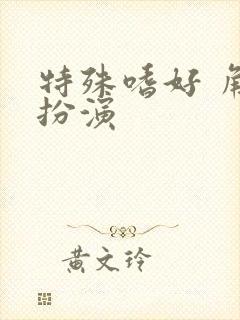 特殊嗜好 角
扮演
黄文玲